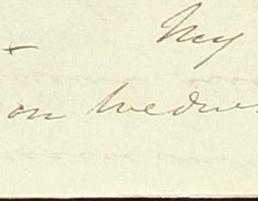 + My
on Wednes